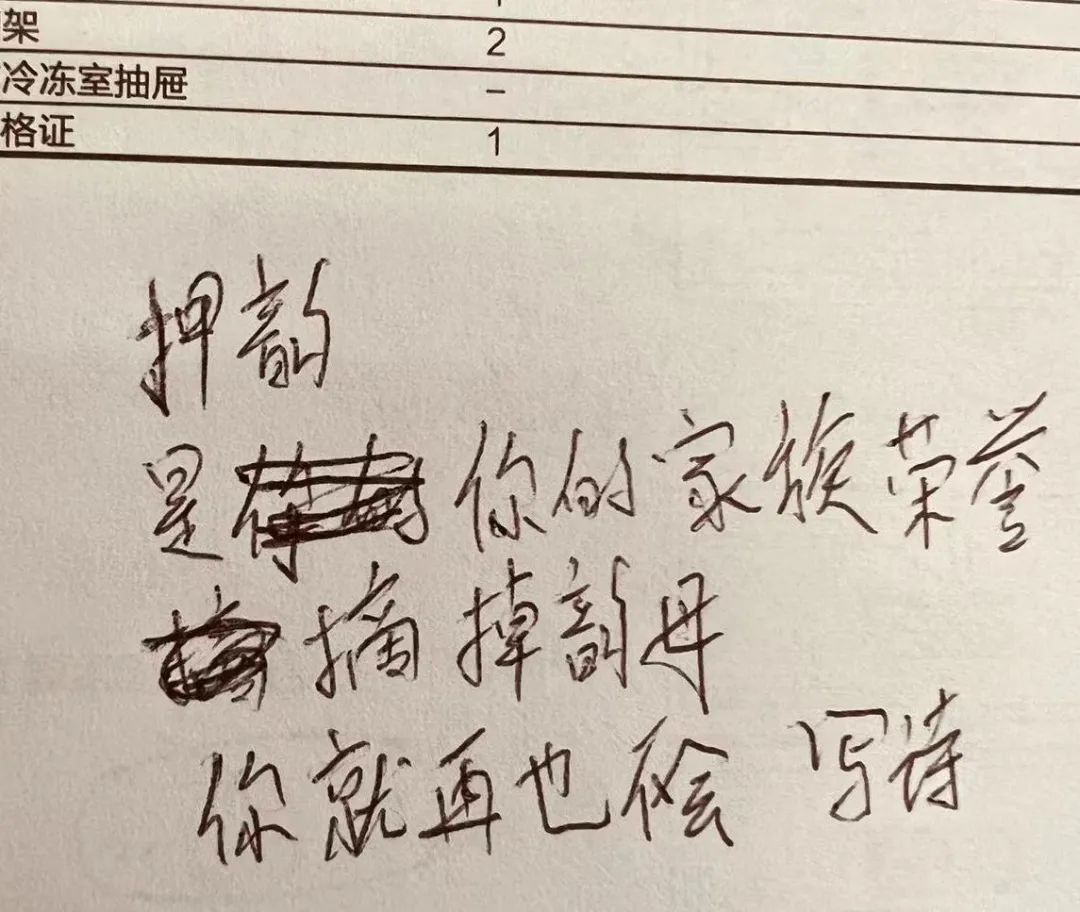 架 2
冷冻室抽屉 –
格证 1
押韵
是你的家族荣誉
摘掉韵母
你就再也不会写诗